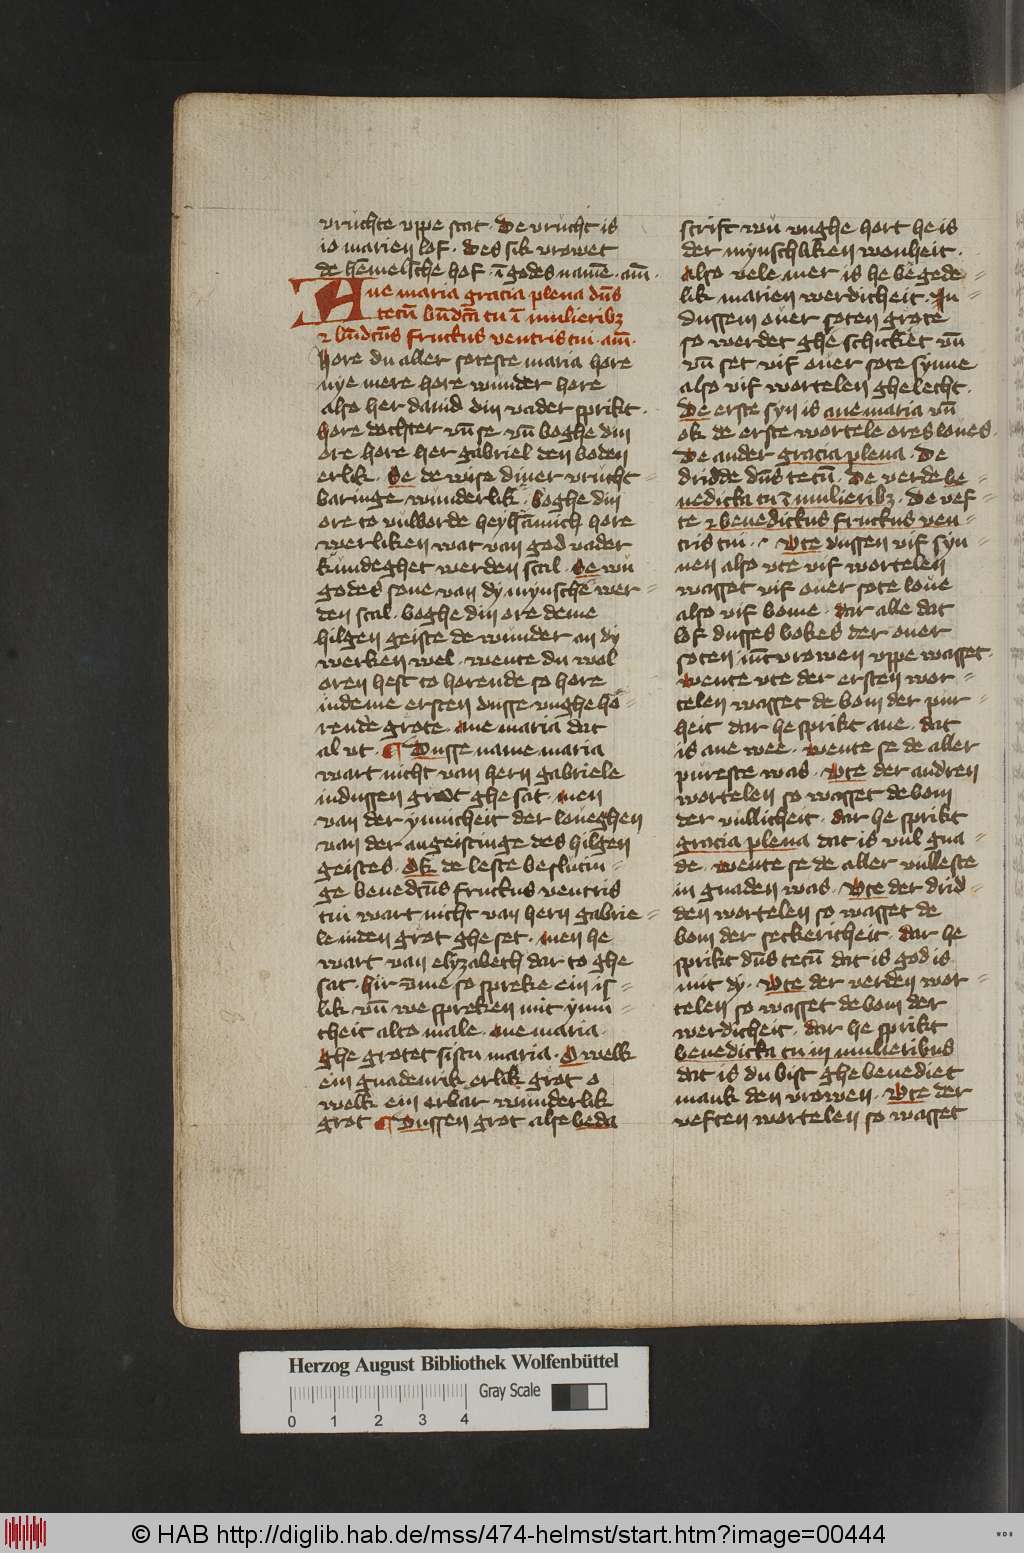 vruchte vppe stat · De vrucht is
io marien lof · des sik vrowet
de hēmelsche hof · ī godes namē · amē ·
Aue maria gracia plena dn̄s
tecū bn̄dcā tu ī mulieribꝫ
⁊ bn̄dcūs fructus ventris tui · amē ·
Hore du aller soteste maria hore
nye mere hore wunder hore
also her dauid din vader sprikt ·
hore dochter vn̄ se vn̄ boghe din
ore hore her gabriel den boden
erlik · Se de wiso diner vrucht =
baringe wunderlik · boghe din
ore to vulborde hore
werliken wat van god vader
kundeghet werden scal · Se wu
godes sone van dy mynsche wer =
den scal · boghe din ore deme
hilgen geiste de wunder an dy
werken wel · wente du wol
oren hest to horende so hore
indeme ersten dusse vughe ho =
rende grote · aue maria dat
al vt · ¶ Dusse name maria
wart nicht van hern gabriele
indussen grot ghe sat · men
van der ynnicheit der loueghen
van der angeistinge des hilgen
geistes · Ok de leste beslutin =
ge benedctūs fructus ventris
tui wart nicht van hern gabrie =
le inden grot ghe set · men he
wart van elyzabeth dar to ghe
sat · hir vmme so spreke ein is =
lik vn̄ we spreken mit ynni =
cheit alto male · aue maria ·
ghe grotet sistu maria · O welk
ein gnadenrik erlik grot o
welk ein erbar wunderlik
grot ¶ Dussen grot alse beda
scrift wu vughe hort he is
der mynschliken wonheit ·
also vele mer is he begede =
lik marien werdicheit · In
dussem ouer soten grote
so werdet ghe schicket vn̄
vn̄ set vif ouer sote synne
also vif wortelen ghelecht ·
De erste syn is aue maria vn̄
ok de erste wortele ores loues ·
De ander gracia plena · De
dridde dn̄s tecū · De verde be =
nedicta tu ī mulieribꝫ · De vef =
te ⁊ benedictus fructus ven =
tris tui · Vte dussen vif syn =
nen also vte vif wortelen
wasset vif ouer sote loue
also vif bome · dar alle dat
lof dusses bokes der ouer
soten iūcvrowen vppe wasset ·
wente vte der ersten wor =
telen wasset de bom der pur =
heit dar he sprikt aue · dat
is ane wee · wente se de aller
pureste was · Vte der andren
wortelen so wasset de bom
der vullicheit · dar he sprikt
gracia plena dat is vul gna =
de · wente se de aller vulleste
in gnaden was · Vte der drid =
den wortelen so wasset de
bom der seckericheit · dar he
sprikt dn̄s tecū dat is god is
mit dy · Vte der verden wor =
telen so wasset de bom der
werdicheit · dar he sprikt
benedicta tu in mulieribus
dat is du bist ghe benediet
mank den vrowen · Vte der
veften wortelen so wasset
Herzog August Bibliothek Wolfenbüttel
Gray Scale
0 1 2 3 4
© HAB http://diglib.hab.de/mss/474-helmst/start.htm?image=00444
WDB